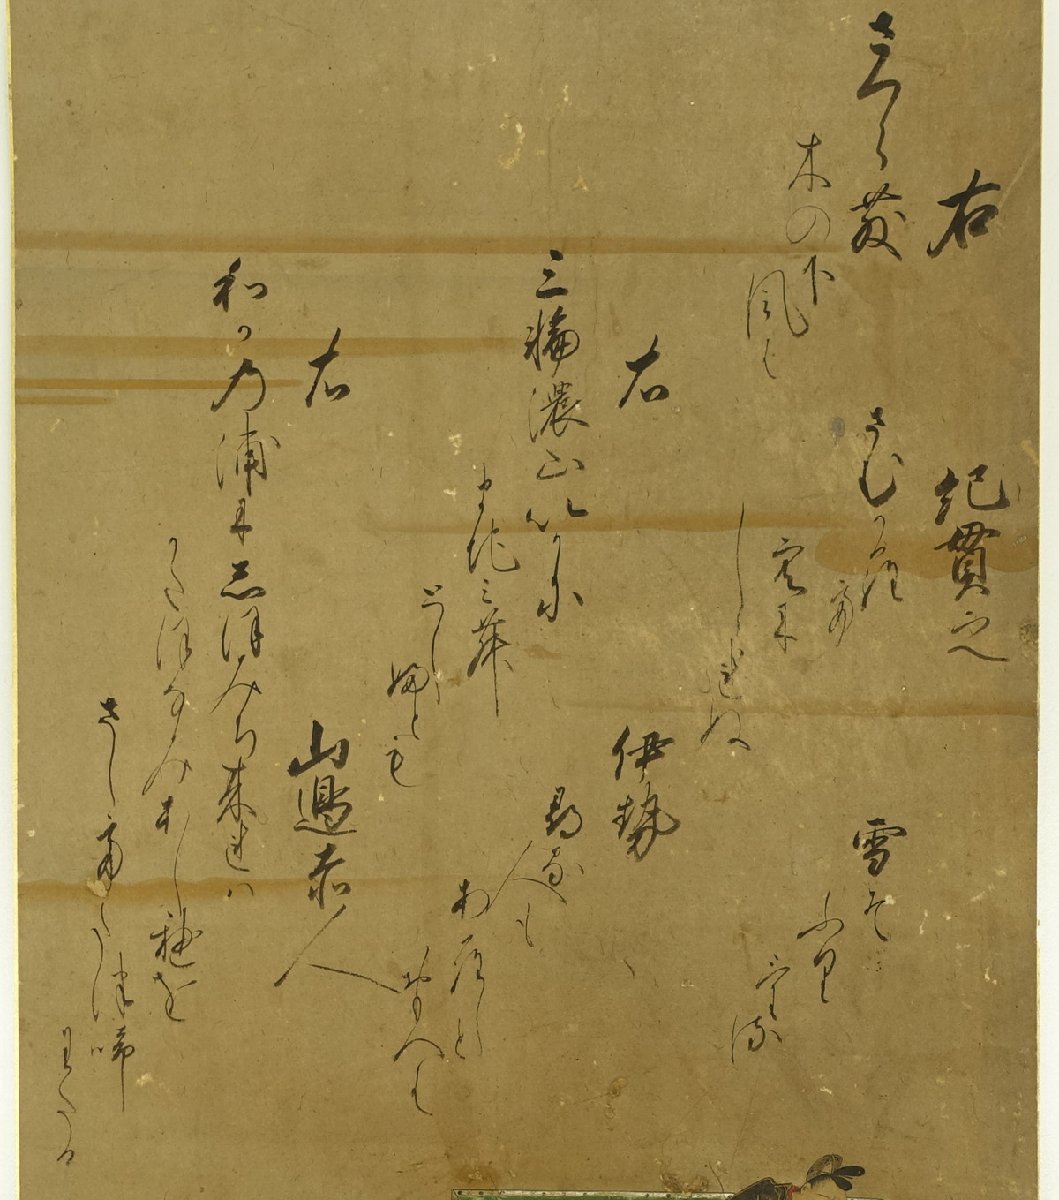 右 紀貫之
さくら散
木の下風は
さむからて
空に
しられぬ
雪そ
ふり
ける
右 伊勢
三輪濃山いかに
まち三舞
とし
婦とも
尋ぬる
人も
あらしと
おもへは
右 山邊赤人
和可乃浦にしほみち来れは
かたほなみあし邊を
さしてたつ啼
わたる